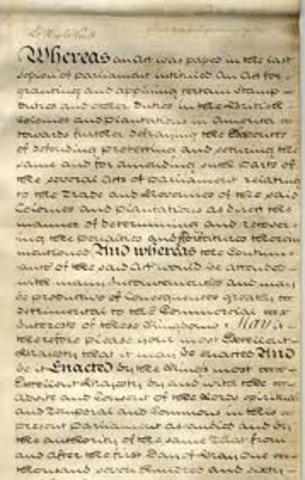 Whereas an Act was passed in the last
Session of parliament intituled An Act for
granting and applying certain Stamp
duties and other Duties in the British
Colonies and plantations in America
towards further defraying the Expences
of defending protecting and securing the
same and for amending such parts of
the several Acts of parliament relating
to the Trade and Revenues of the said
Colonies and plantations as direct the
manner of determining and recover
ing the penalties and forfeitures therein
mentioned And whereas the Continu
ance of the said Act would be attended
with many Inconveniencies and may
be productive of Consequences greatly
detrimental to the Commercial
Interests of these Kingdoms May it
therefore please your most Excellent
Majesty that it may be enacted And
be it Enacted by the Kings most
Excellent Majesty by and with the
advice and Consent of the Lords spiritual
and Temporal and Commons in this
present parliament assembled and by
the authority of the same That from
and after the first Day of May One
thousand seven Hundred and sixty